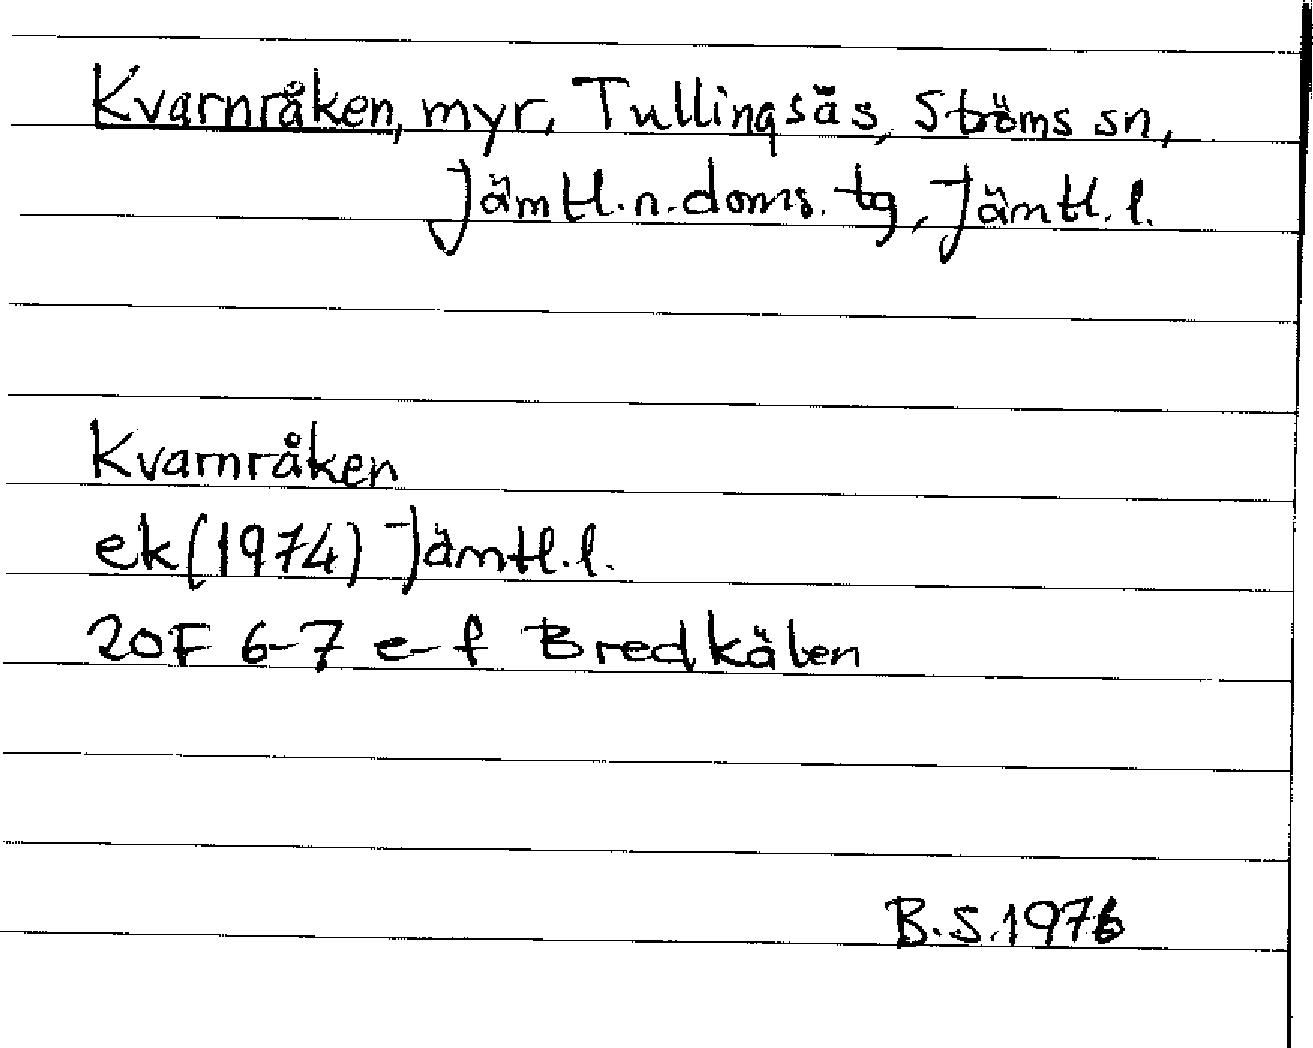 Kvarnråken, myr, Tullingsås, Ströms sn,
Jämtl. n. doms. tg, Jämtl. l.
Kvarnråken
ek (1974) Jämtl. l.
20F 6-7 e-f Bredkälen
B.S. 1976